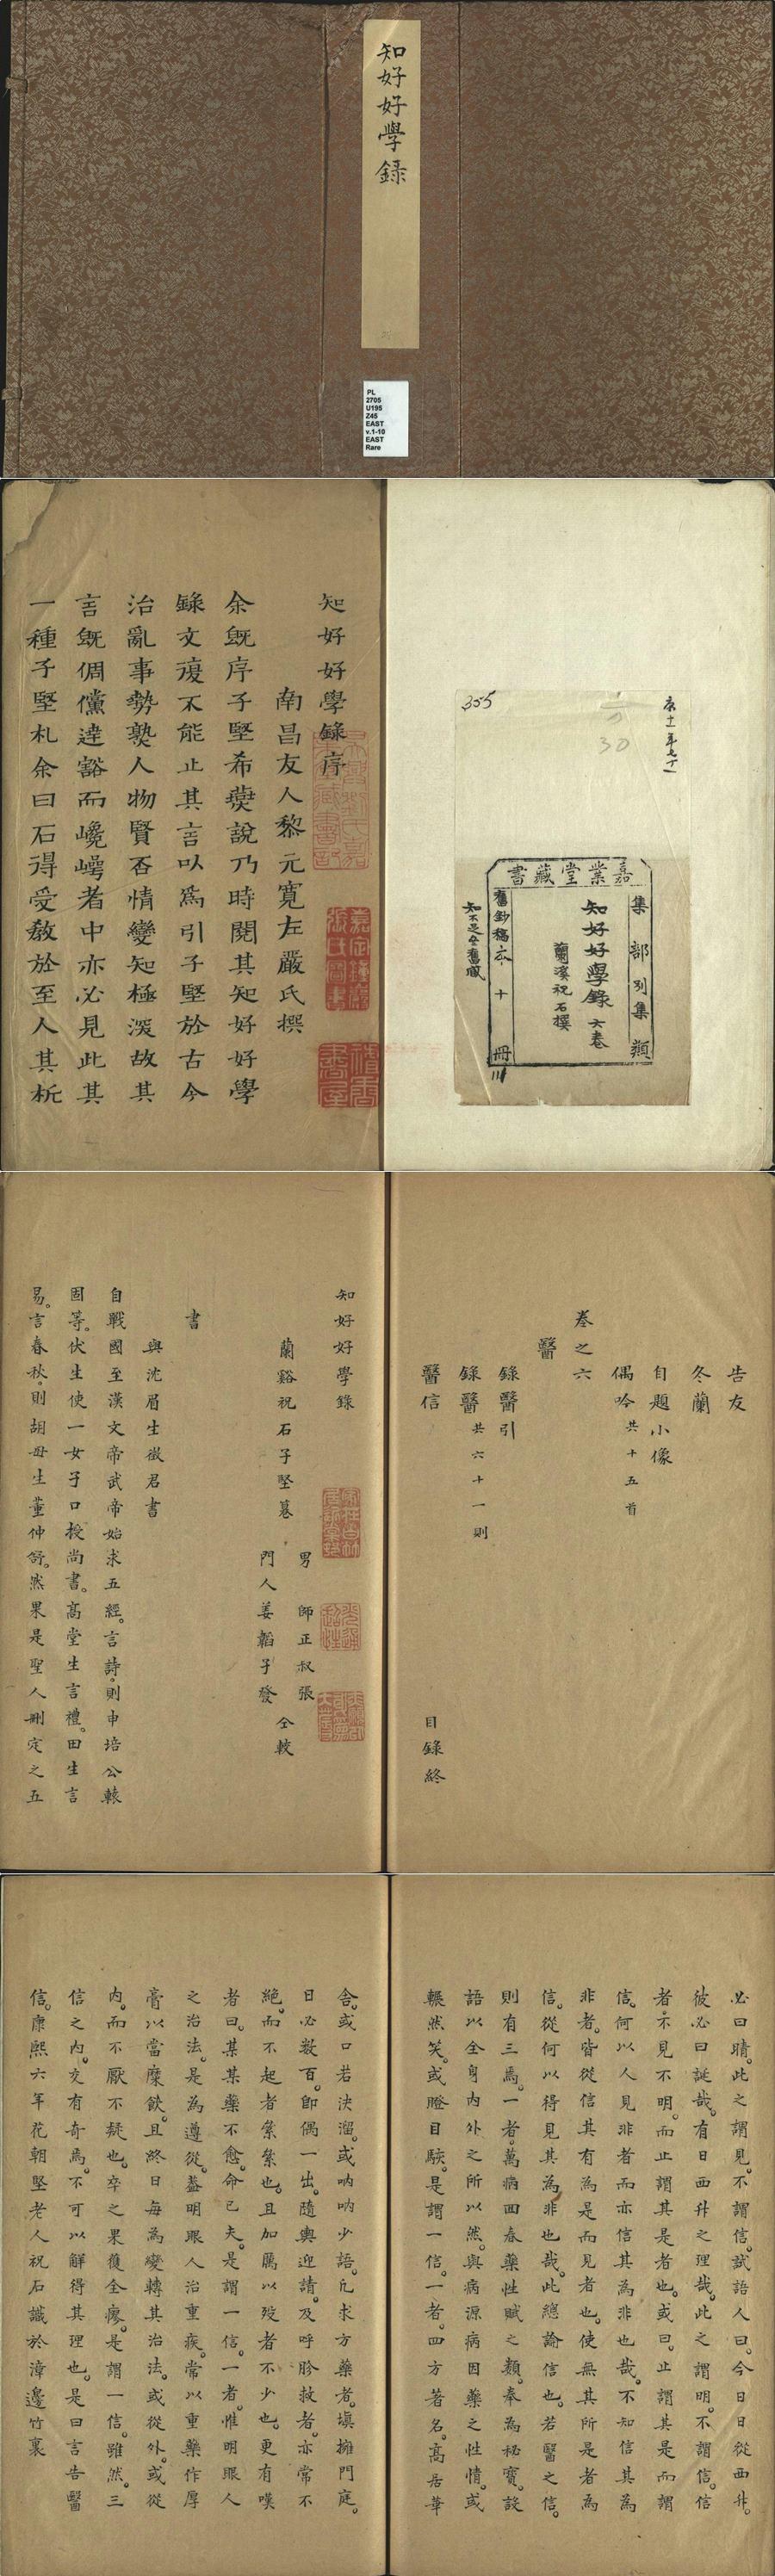 知好好學錄
PL
2705
U195
Z45
EAST
v.1-10
EAST
Rare
355
30
嘉業堂藏書
集部別集類
知好好學錄 六卷
蘭溪祝石撰
舊鈔稿本 十冊
知不足齋舊藏
知好好學錄序
南昌友人黎元寬左嚴氏撰
余既序子堅希燕說乃時閱其知好好學
錄文復不能止其言以爲引子堅於古今
治亂事勢熟人物賢否情變知極深故其
言既倜儻達豁而巉嶨者中亦必見此其
一種子堅札余曰石得受教於至人其析
告友
冬蘭
自題小像
偶吟 共十五首
卷之六
醫
錄醫引
錄醫 共六十一則
醫信
目錄終
知好好學錄
蘭谿祝石子堅纂
男 師正叔張
門人姜韜子發
仝較
書
與沈眉生徵君書
自戰國至漢文帝武帝始求五經。言詩。則申培公轅
固等。伏生使一女子口授尚書。高堂生言禮。田生言
易。言春秋。則胡毋生董仲舒。然果是聖人刪定之五
必曰晴。此之謂見。不謂信。試語人曰。今日日從西升。
彼必曰誕哉。有日西升之理哉。此之謂明。不謂信。信
者。不見不明。而止謂其是者也。或曰。止謂其是而謂
信。何以人見非者而亦信其為非也哉。不知信其為
非者。皆從信其有為是而見者也。使無其所是者為
信。從何以得見其為非也哉。此總論信也。若醫之信。
則有三焉。一者。萬病回春藥性賦之類。奉為秘寶。設
語以全身內外之所以然。與病源病因藥之性情。或
輾然笑。或瞪目駭。是謂一信。一者。四方著名。高居華
舍。或口若決溜。或吶吶少語。凡求方藥者。塡擁門庭。
日必數百。卽偶一出。隨輿迎請。及呼肹救者。亦常不
絕。而不起者纍纍也。且加厲以歿者不少也。更有嘆
者曰。某某藥不愈。命已夫。是謂一信。一者。惟明眼人
之治法。是為遵從。蓋明眼人治重疾。常以重藥作厚
膏以當糜飲。且終日每為變轉其治法。或從外。或從
內。而不厭不疑也。卒之果獲全瘳。是謂一信。雖然。三
信之內。亥有奇焉。不可以解得其理也。是曰言告醫
信。康熙六年花朝堅老人祝石識於漳邊竹裏